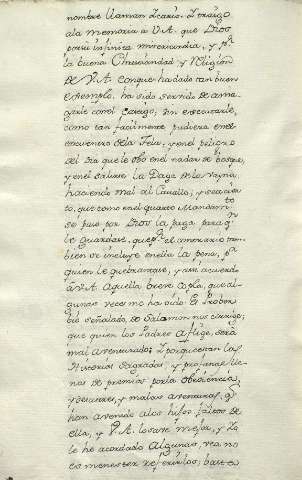 nombre llaman Icario. I traigo
ala memoria a V.A. que Dios
por su infinita misericordia, y pr.
la buena Christiandad y Religion
de V.A. con que ha dado tan buen
exemplo, ha sido servido de ama-
garle con el castigo, sin executarle,
como tan facilmente pudiera en el
encuentro dela Tela, y en el peligro
del dia que le obo en el nadar de bosque,
y en el salirse la Daga de la Vayna,
haciendo mal al Cavallo, y se acuer-
to, que como en el quarto Mandamto.
se puso por Dios la paga para qn.
le guardase, que pr. el contrario tam-
bien se incluye en ella la pena, pa.
quien le quebrantare, y assi acuerdo
a V.A. aquella breve copla, que al-
gunas veces me ha oido el Prover-
bio señalado de Salamon nos
que quien los Padres aflige, será
mal aventurado; I porque estan las
Historias sagradas y profanas lle-
nas de premios por la obediencia
y desastres, y malas venturas, qe.
han avenido alos hijos faltos de
ella, y V.A. lo sabe mejor, y Yo
le he acordado algunas, vea no
es menester referirlas; baste